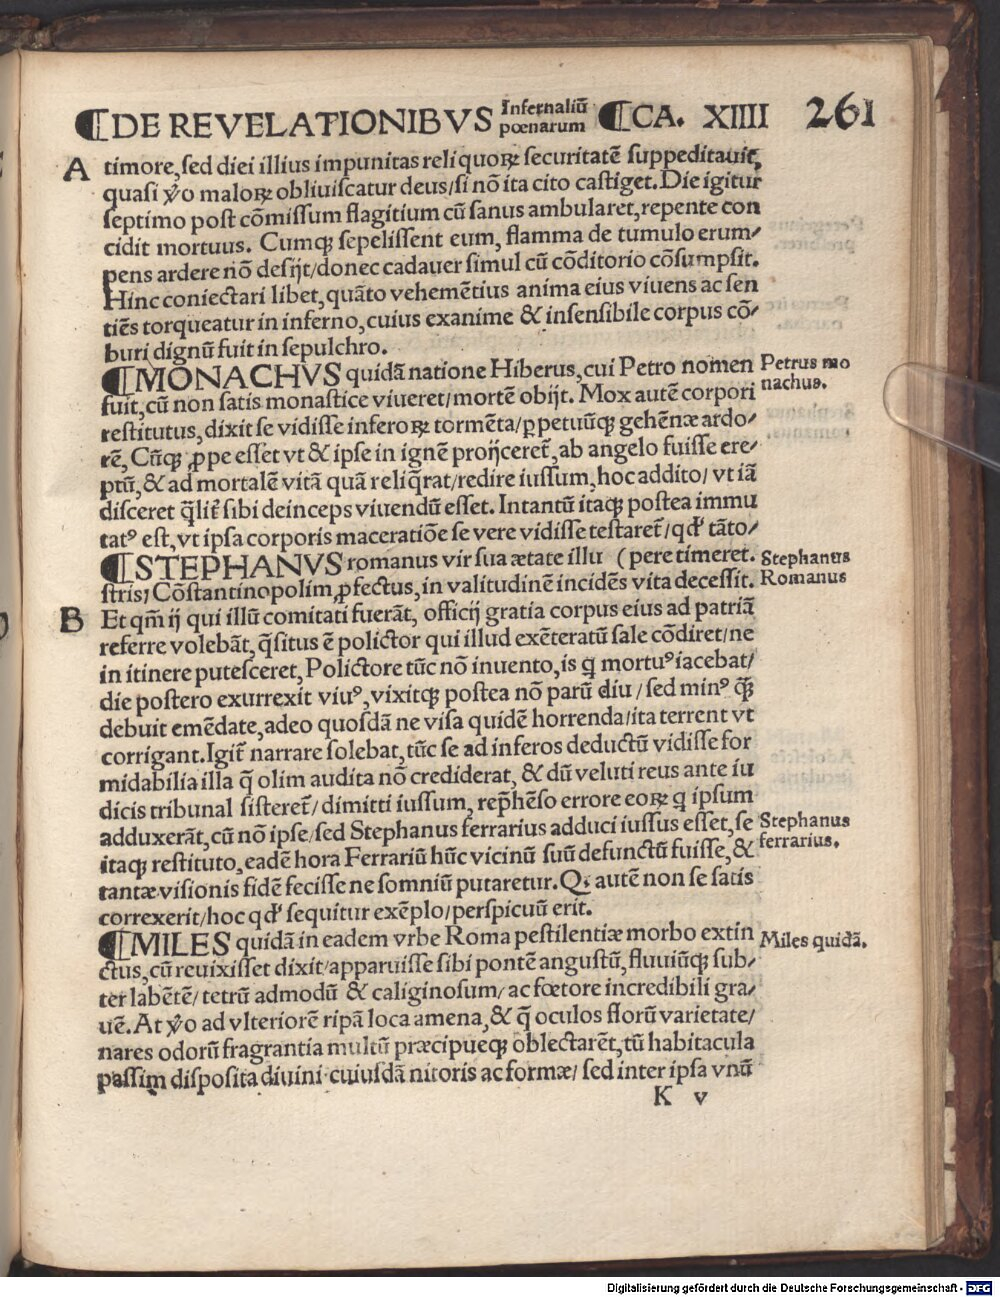 ¶DE REVELATIONIBVS Infernaliũ pœnarum ¶CA. XIIII 261
A timore, sed diei illius impunitas reliquoꝝ securitatẽ suppeditauit,
quasi ṽo maloꝝ obliuiscatur deus/si nõ ita cito castiget. Die igitur
septimo post cõmissum flagitium cũ sanus ambularet, repente con
cidit mortuus. Cumqꝫ sepelissent eum, flamma de tumulo erum/
pens ardere nõ desijt/donec cadauer simul cũ cõditorio cõsumpsit.
Hinc coniectari libet, quãto vehemẽtius anima eius viuens ac sen
tiẽs torqueatur in inferno, cuius exanime & insensibile corpus cõ/
buri dignũ fuit in sepulchro.
¶MONACHVS quidã natione Hiberus, cui Petro nomen
Petrus mo
nachus.
fuit, cũ non satis monastice viueret/mortẽ obijt. Mox autẽ corpori
restitutus, dixit se vidisse inferoꝝ tormẽta/ꝑpetuũqꝫ gehẽnæ ardo/
rẽ, Cũqꝫ ꝓpe esset vt & ipse in ignẽ proijceret̃, ab angelo fuisse ere/
ptũ, & ad mortalẽ vitã quã reliq̃rat/redire iussum, hoc addito/ vt iã
disceret q̃lit̃ sibi deinceps viuendũ esset. Intantũ itaqꝫ postea immu
tatꝰ est, vt ipsa corporis maceratiõe se vere vidisse testaret̃/qď tãto/
¶STEPHANVS romanus vir sua ætate illu (pere timeret.
Stephanus
Romanus
stris, Cõstantinopolim ꝓfectus, in valitudinẽ incidẽs vita decessit.
B Et qm̃ ij qui illũ comitati fuerãt, officij gratia corpus eius ad patriã
referre volebãt, q̃situs ẽ polictor qui illud exẽteratũ sale cõdiret/ne
in itinere putesceret, Polictore tũc nõ inuento, is q̃ mortuꝰ iacebat/
die postero exurrexit viuꝰ, vixitqꝫ postea nõ parũ diu/sed minꝰ q̃ꝫ
debuit emẽdate, adeo quosdã ne visa quidẽ horrenda/ita terrent vt
corrigant. Igit̃ narrare solebat, tũc se ad inferos deductũ vidisse for
midabilia illa q̃ olim audita nõ crediderat, & dũ veluti reus ante iu
dicis tribunal sisteret̃/ dimitti iussum, rep̃hẽso errore eoꝝ q̃ ipsum
adduxerãt, cũ nõ ipse/sed Stephanus ferrarius adduci iussus esset, se
Stephanus
ferrarius.
itaqꝫ restituto, eadẽ hora Ferrariũ hũc vicinũ suũ defunctũ fuisse, &
tantæ visionis fidẽ fecisse ne somniũ putaretur. Qꝫ autẽ non se satis
correxerit/hoc qď sequitur exẽplo/perspicuũ erit.
¶MILES quidã in eadem vrbe Roma pestilentiæ morbo extin
Miles quidã.
ctus, cũ reuixisset dixit/apparuisse sibi pontẽ angustũ, fluuiũqꝫ sub/
ter labẽtẽ/ tetrũ admodũ & caliginosum/ ac fœtore incredibili gra/
uẽ. At ṽo ad vlteriorẽ ripã loca amena, & q̃ oculos florũ varietate/
nares odorũ fragrantia multũ præcipueqꝫ oblectarẽt, tũ habitacula
passim disposita diuini cuiusdã nitoris ac formæ/ sed inter ipsa vnũ
K v
Digitalisierung gefördert durch die Deutsche Forschungsgemeinschaft - DFG